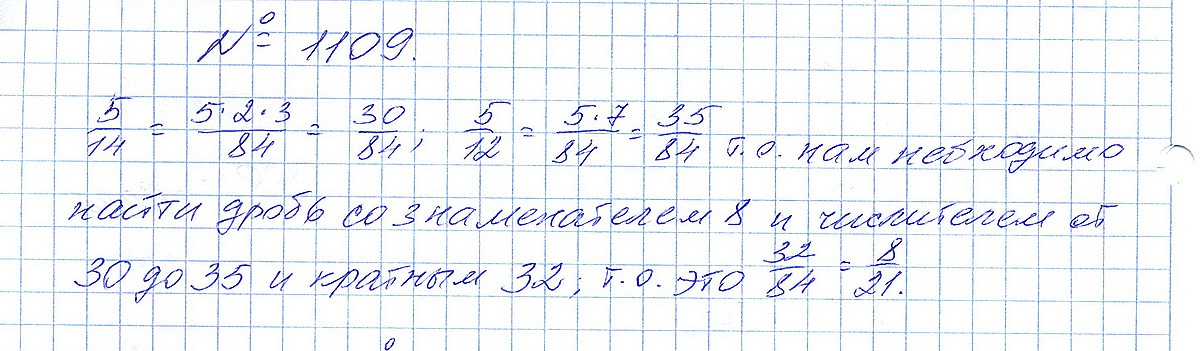 № 1109.
5/14 = 5·2·3/84 = 30/84; 5/12 = 5·7/84 = 35/84 т.о. нам небходимо
найти дробь со знаменателем 8 и числителем от
30 до 35 и кратным 32; т.о. это 32/84 = 8/21.